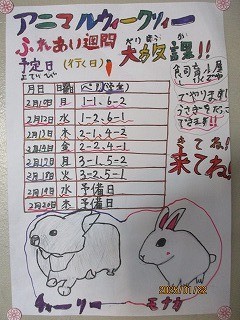 アニマルウィークリィー
ふれあい週間
大放課!!
予定日(行く日)
よていび
飼育小屋
でやります!
うさぎをだっこ
できます!!
きてね!
来てね!
月日 曜日
2月10日 月 1-1、6-2
2月12日 水 1-2、6-1
2月13日 木 2-1、4-2
2月14日 金 2-2、4-1
2月17日 月 3-1、5-2
2月18日 火 3-2、5-1
2月19日 水 予備日
2月20日 木 予備日
チャーリー
モナカ